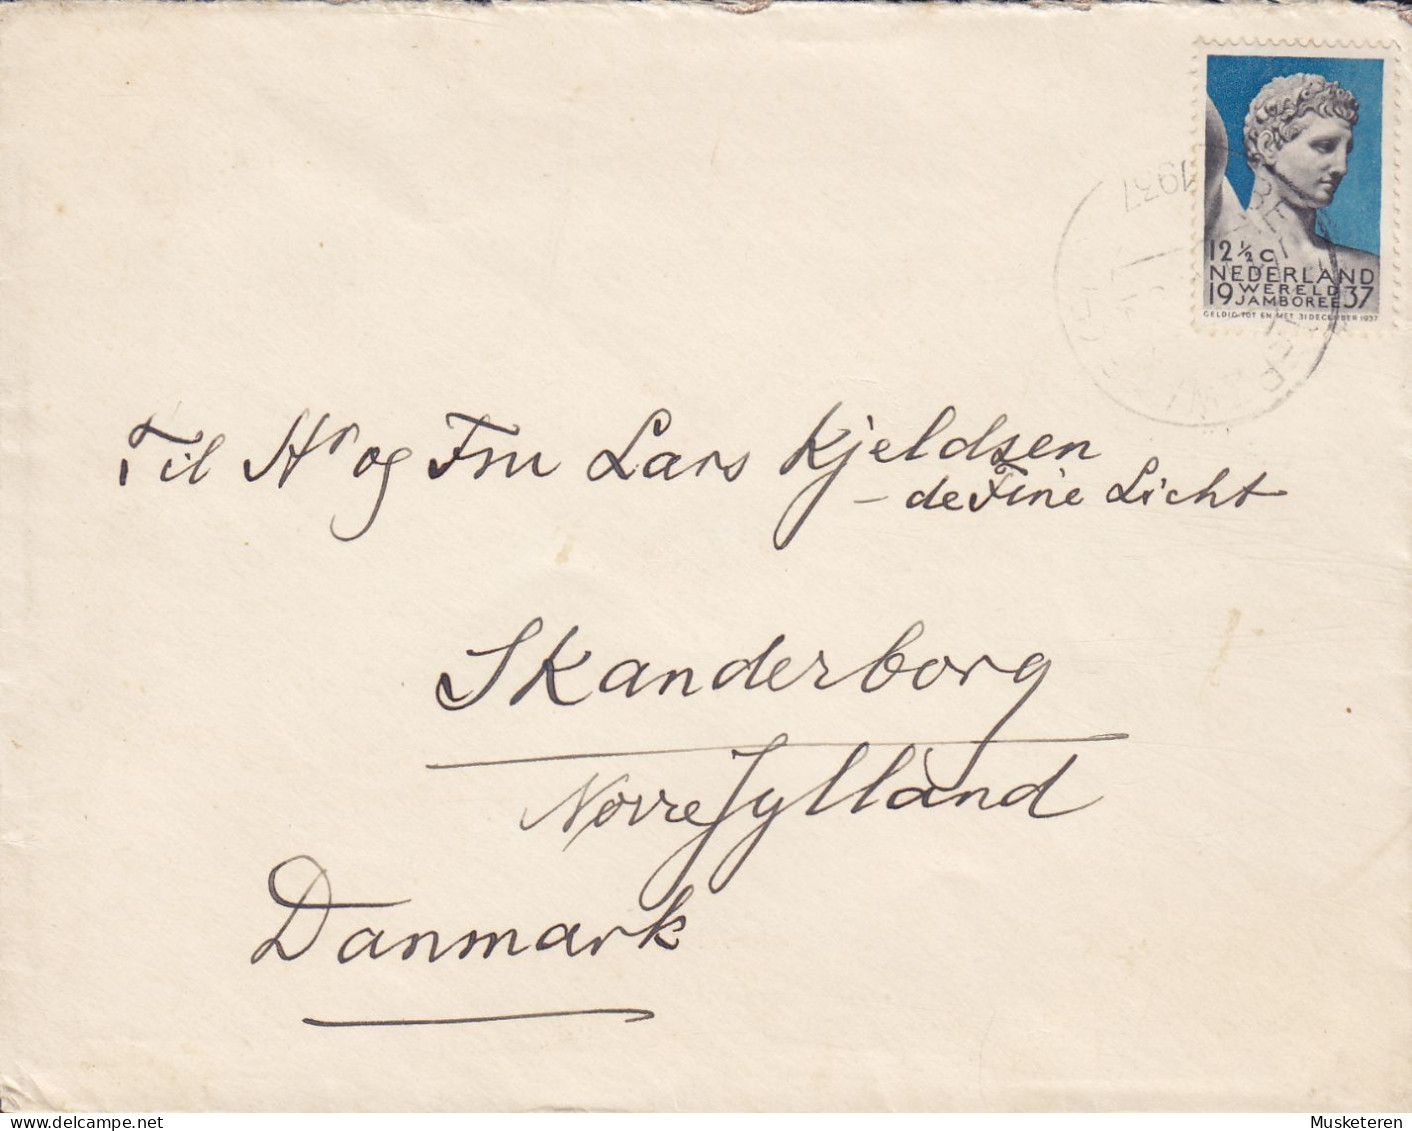 12 ½ C
NEDERLAND
19 WERELD 37
JAMBOREE
GELDIG TOT EN MET 31 DECEMBER 1937
1937
Til Hr og Fru Lars Kjeldsen
- de Fine Licht
Skanderborg
Nørre Jylland
Danmark
Musketeren